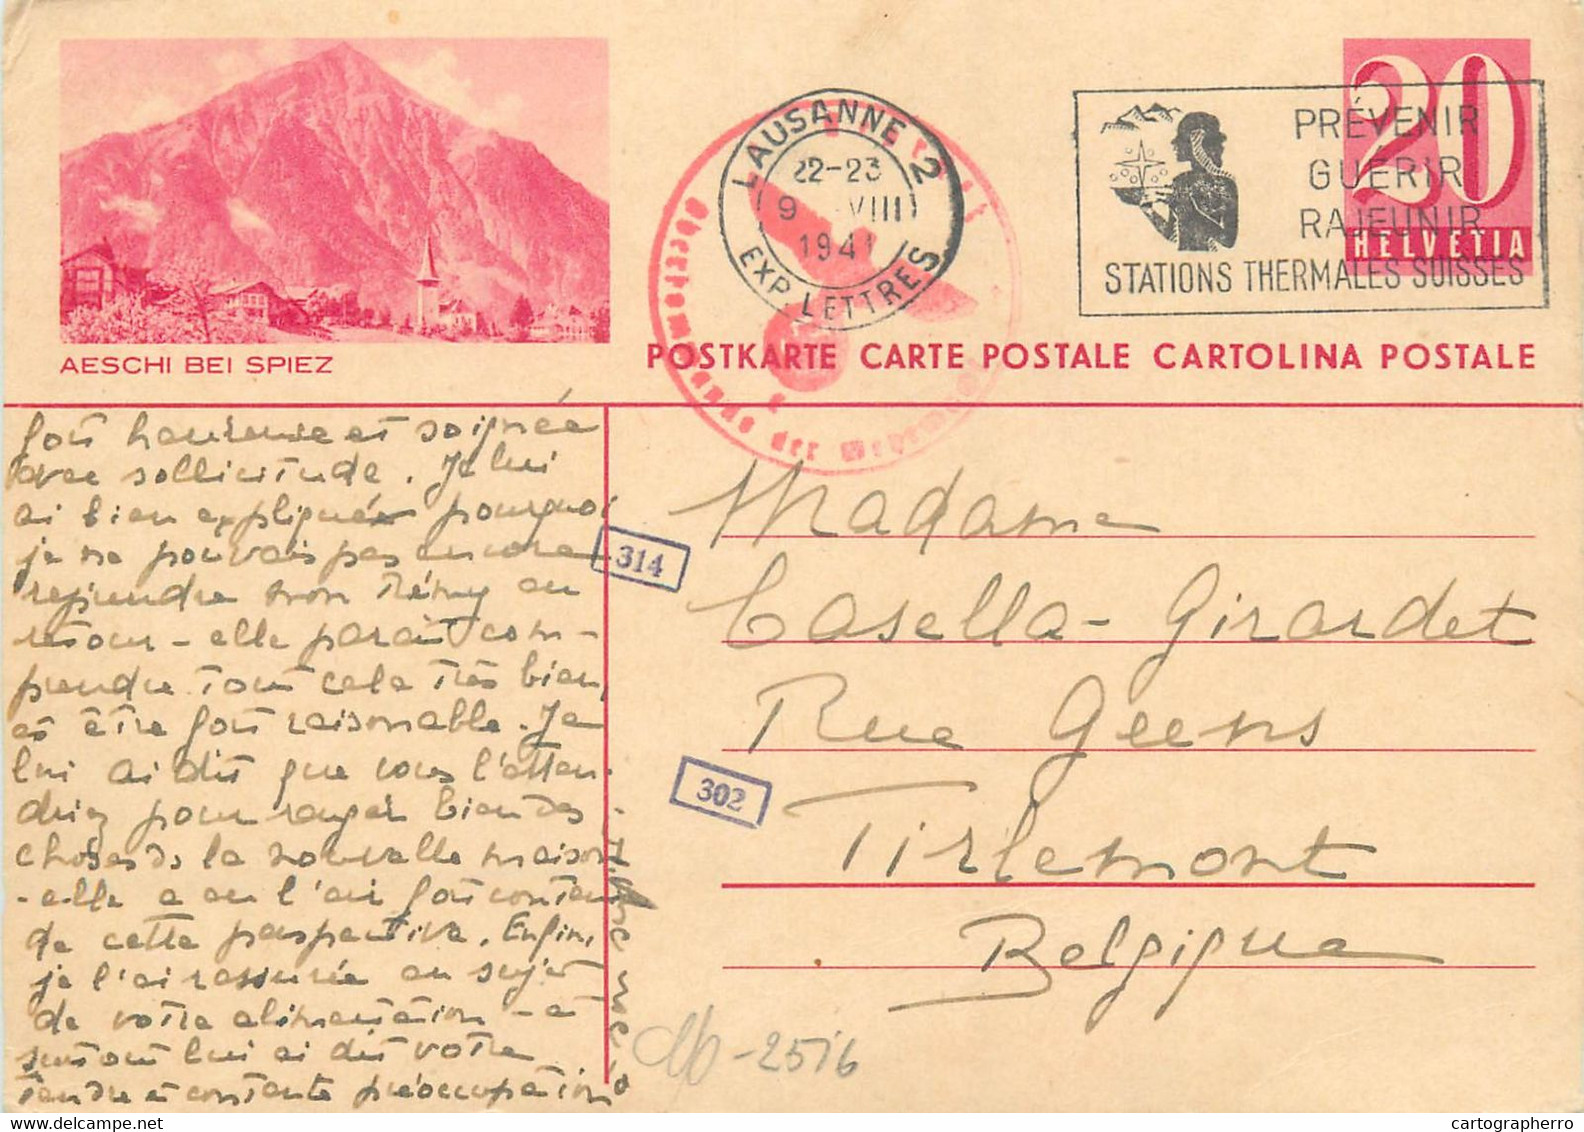 20
HELVETIA
LAUSANNE 2
22-23
9 VIII
1941
EXP. LETTRES
PRÉVENIR
GUERIR
RAJEUNIR
STATIONS THERMALES SUISSES
Oberkommando der Wehrmacht
e
AESCHI BEI SPIEZ
POSTKARTE CARTE POSTALE CARTOLINA POSTALE
fort heureuse et soignée
avec sollicitude. Je lui
ai bien expliquée pourquoi
je ne pouvais pas encore
rejoindre mon Rémy au
retour - elle paraît com-
prendre tout cela très bien,
et être fort raisonable. Je
lui ai dit que vous l'atten-
driez pour ranger bien des
choses ds la nouvelle maison
- elle a eu l'air fort
de cette perspective. Enfin,
je l'ai rassurée au sujet
de votre alimentation - et
surtout lui ai dit votre
tendre et constante préoccupation
314
302
Madame
Casella-Girardet
Rue Geens
Tirlemont
Belgique
-2516
cartographerro